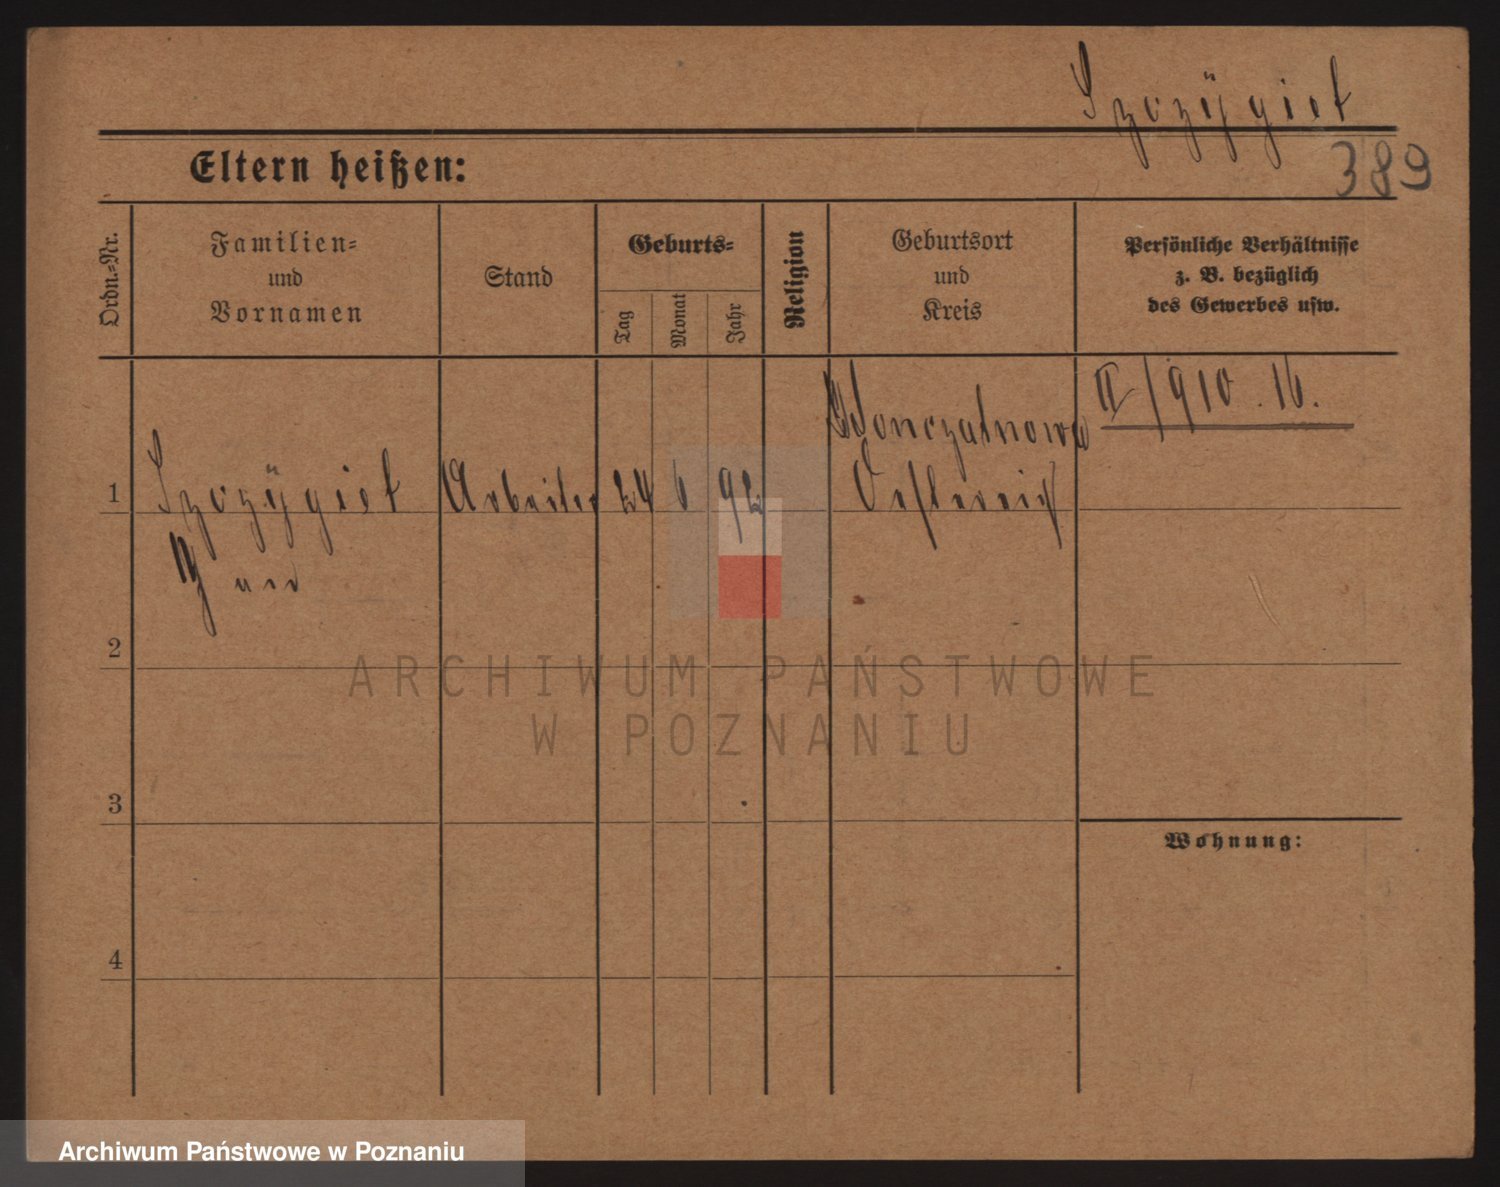 Szozÿgiet
389
Eltern heißen:
Ordn.-Nr.
Familien-
und
Vornamen
Stand
Geburts-
Tag
Monat
Jahr
Religion
Geburtsort
und
Kreis
Persönliche Verhältnisse
z. B. bezüglich
des Gewerbes usw.
II/910.16.
1
Szozÿgiet
Arbeiter
24
6
92
Oesterreich
2
3
4
Wohnung:
ARCHIWUM PAŃSTWOWE
W POZNANIU
Archiwum Państwowe w Poznaniu